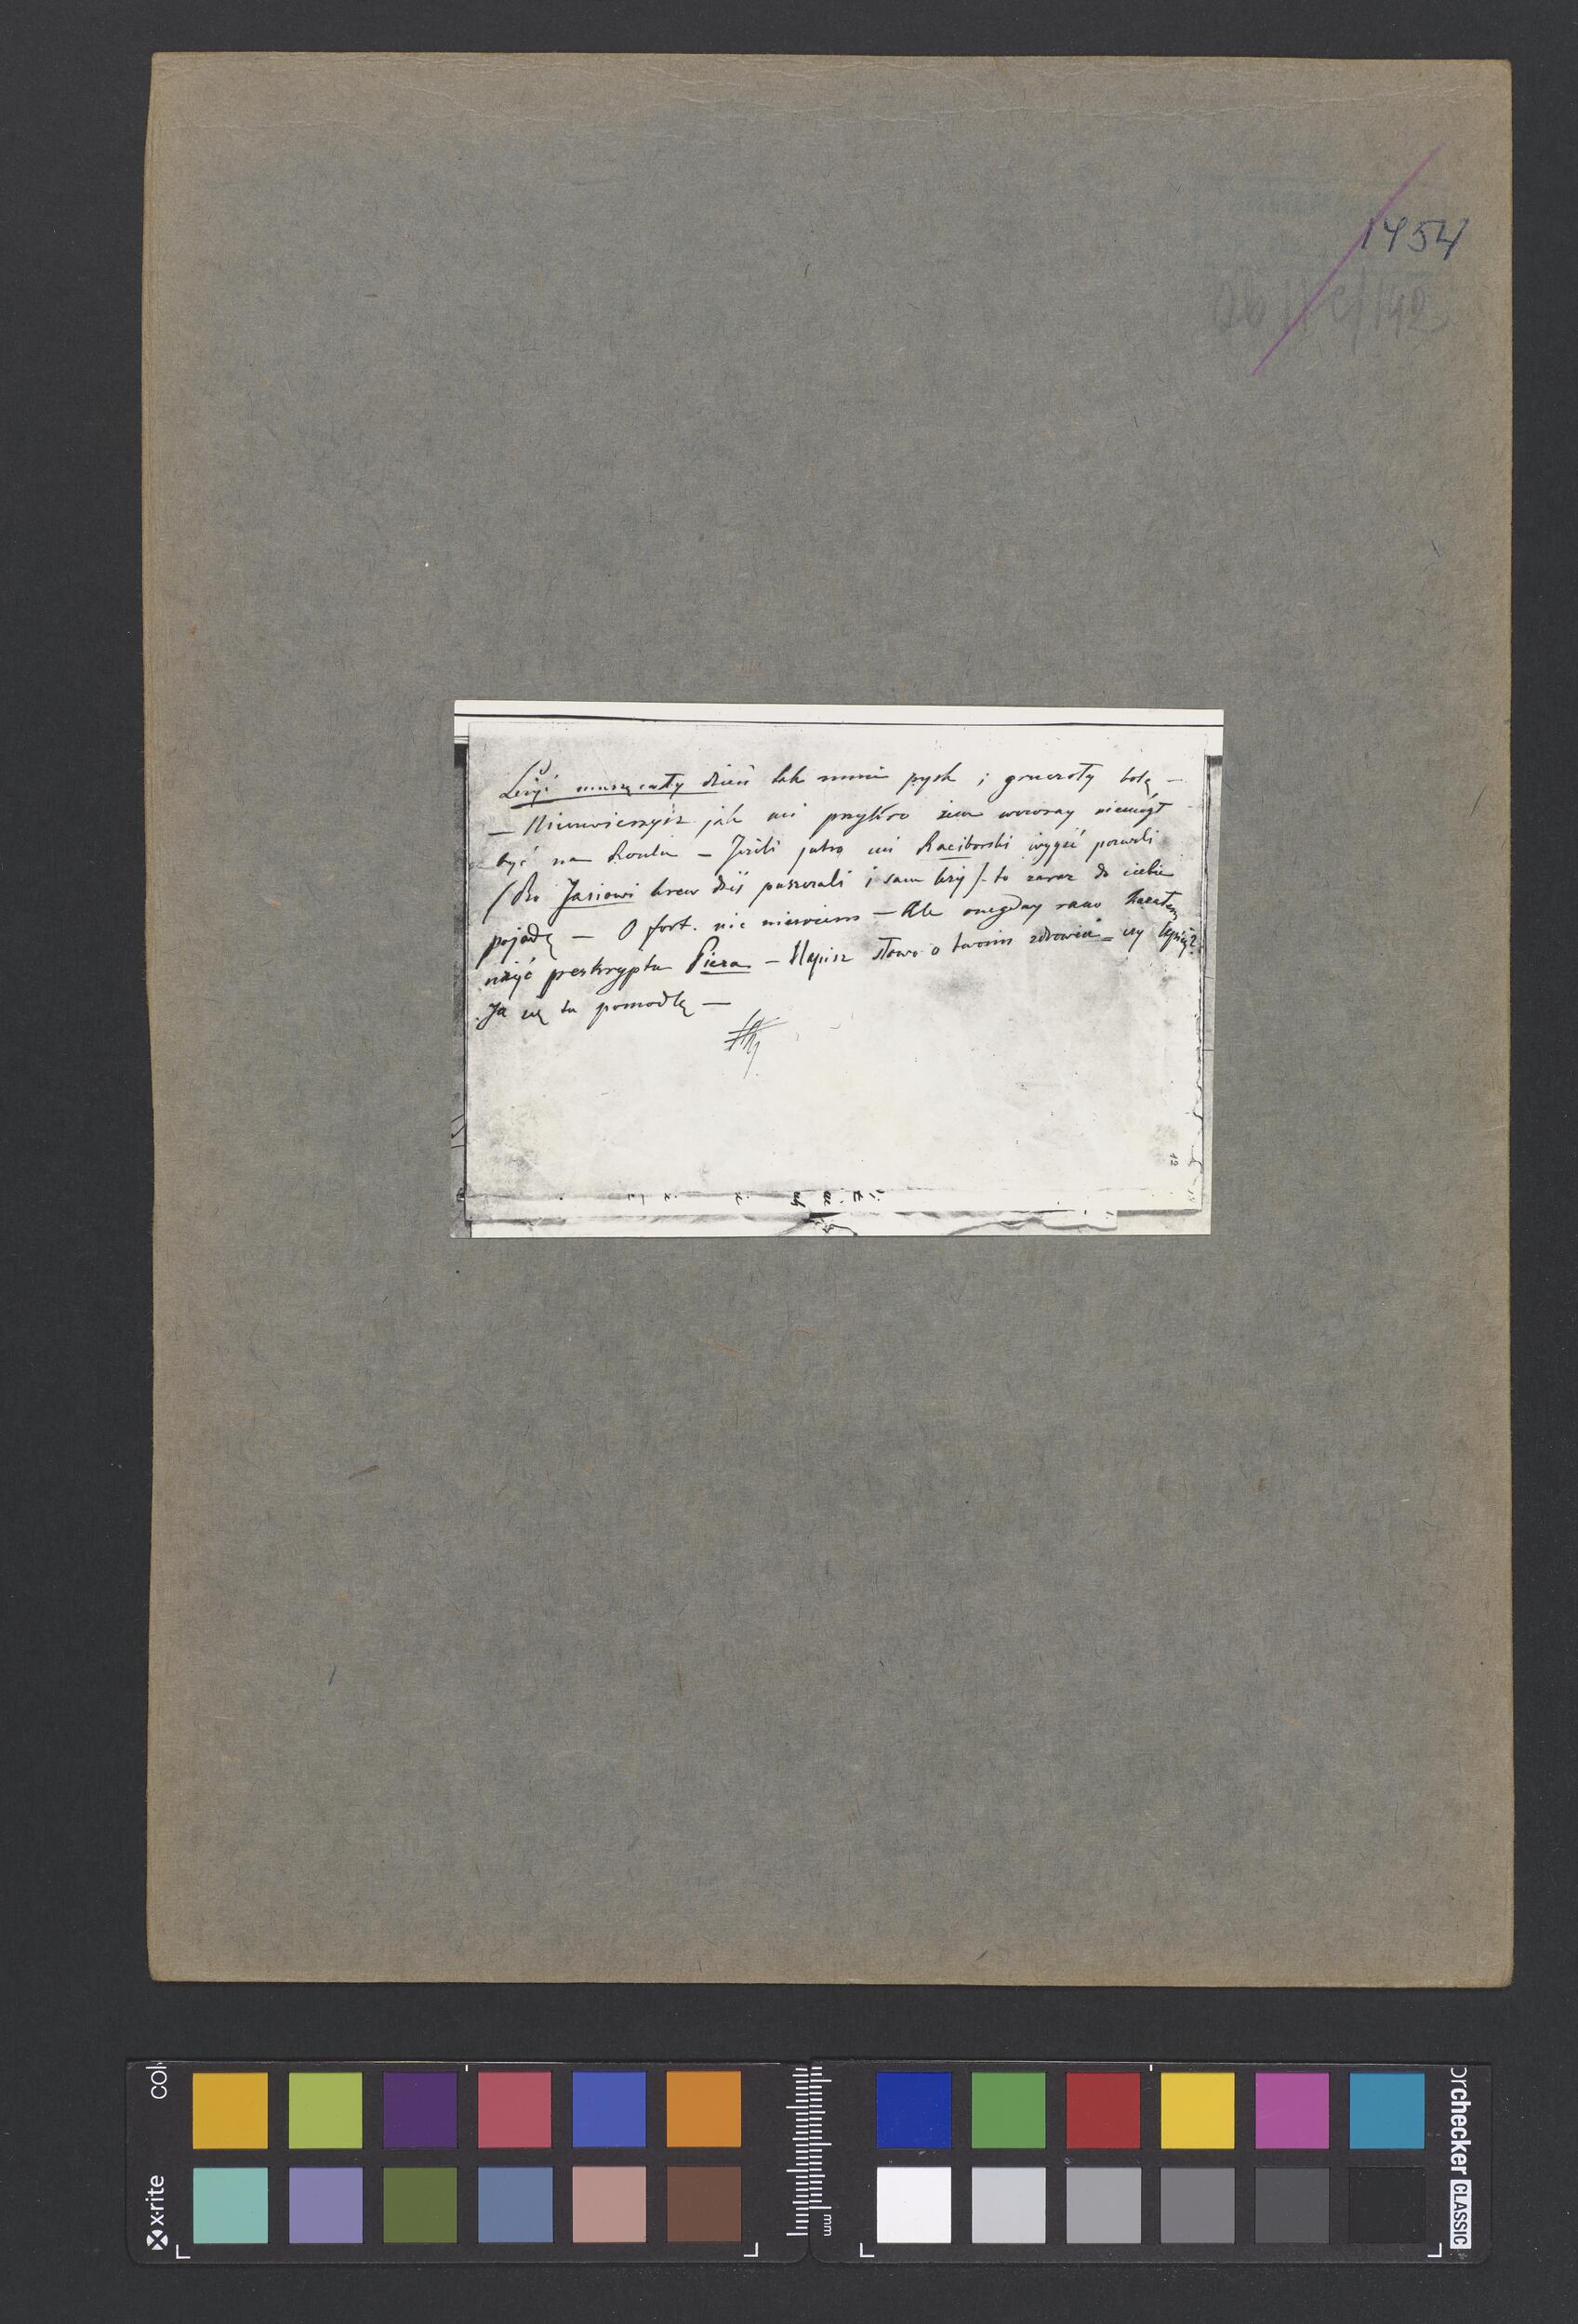 1454
Ob II c/142
Leżyć muszę cały dzień tak mnie pysk i gruczoły bolą —
— Nieuwierzysz jak mi przykro żem wczoray niemógł
być na Roulu — Jeżeli jutro mi Raciborski wyyść pozwoli
(Bo Jasiowi krew dziś puszczali i sam leży) to zaraz do ciebie
pojadę — O fort. nic niewiem — Ale onegday rano kazałem
użyć preskryptu Piera — Napisz słowo o twoim zdrowiu — czy lepiéj?
Ja się tu pomodlę —
12
x·rite
mm
colorchecker CLASSIC